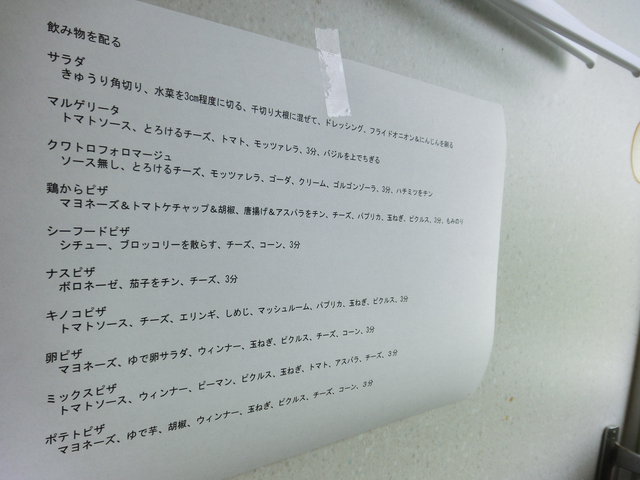 飲み物を配る
サラダ
きゅうり角切り、水菜を3cm程度に切る、千切り大根に混ぜて、ドレッシング、フライドオニオン&にんじんを飾る
マルゲリータ
トマトソース、とろけるチーズ、トマト、モッツァレラ、3分、バジルを上でちぎる
クワトロフォロマージュ
ソース無し、とろけるチーズ、モッツァレラ、ゴーダ、クリーム、ゴルゴンゾーラ、3分、ハチミツをチン
鶏からピザ
マヨネーズ&トマトケチャップ&胡椒、唐揚げ&アスパラをチン、チーズ、パプリカ、玉ねぎ、ピクルス、3分、もみのり
シーフードピザ
シチュー、ブロッコリーを散らす、チーズ、コーン、3分
ナスピザ
ボロネーゼ、茄子をチン、チーズ、3分
キノコピザ
トマトソース、チーズ、エリンギ、しめじ、マッシュルーム、パプリカ、玉ねぎ、ピクルス、3分
卵ピザ
マヨネーズ、ゆで卵サラダ、ウィンナー、玉ねぎ、ピクルス、チーズ、コーン、3分
ミックスピザ
トマトソース、ウィンナー、ピーマン、ピクルス、玉ねぎ、トマト、アスパラ、チーズ、3分
ポテトピザ
マヨネーズ、ゆで芋、胡椒、ウィンナー、玉ねぎ、ピクルス、チーズ、コーン、3分